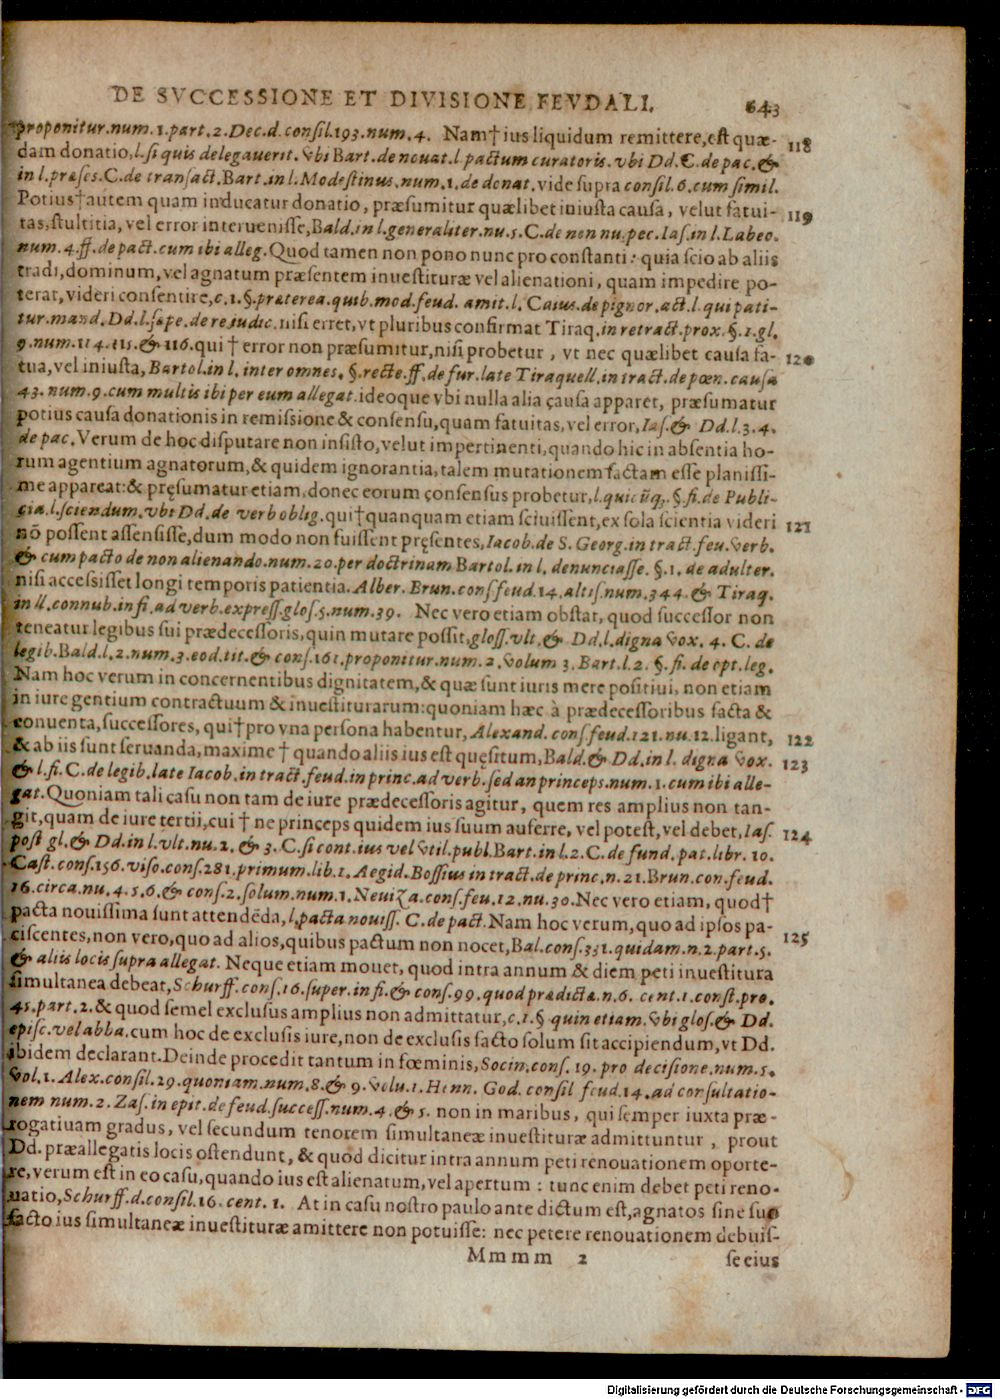 DE SVCCESSIONE ET DIVISIONE FEVDALI. 643
proponitur.num.1.part.2.Dec.d.consil.193.num.4. Nam†ius liquidum remittere,est quæ- 118
dam donatio,l.si quis delegauerit.vbi Bart.de nouat.l.pactum curatoris.vbi Dd.C.de pac.&
in l.præses.C.de transact.Bart.in l.Modestinus.num.1.de donat.vide supra consil.6.cum simil.
Potius†autem quam inducatur donatio, præsumitur quælibet iniusta causa, velut fatui- 119
tas,stultitia, vel error interuenisse,Bald.in l.generaliter.nu.5.C.de non nu.pec.Ias.in l.Labeo.
num.4.ff.de pact.cum ibi alleg.Quod tamen non pono nunc pro constanti: quia scio ab aliis
tradi,dominum,vel agnatum præsentem inuestituræ vel alienationi, quam impedire po-
terat, videri consentire,c.1.§.præterea.quib.mod.feud. amit.l. Caius.de pignor.act.l.qui pati-
tur.mand.Dd.l.sæpe.de re iudic.nisi erret,vt pluribus confirmat Tiraq.in retract.prox.§.1.gl.
9.num.114.115.& 116.qui † error non præsumitur,nisi probetur , vt nec quælibet causa fa- 120
tua,vel iniusta, Bartol.in l. inter omnes. §.recte.ff.de fur.late Tiraquell.in tract.de pœn.causa
43.num.9.cum multis ibi per eum allegat.ideoque vbi nulla alia causa apparet, præsumatur
potius causa donationis in remissione & consensu,quam fatuitas, vel error,Ias.& Dd.l.3.4.
de pac.Verum de hoc disputare non insisto, velut impertinenti,quando hic in absentia ho-
rum agentium agnatorum,& quidem ignorantia,talem mutationem factam esse planissi-
me appareat:& pręsumatur etiam,donec eorum consensus probetur,l.quicūq;.§.fi.de Publi-
cia.l.sciendum.vbi Dd.de verb oblig.qui†quanquam etiam sciuissent,ex sola scientia videri 121
nō possent assensisse,dum modo non fuissent pręsentes,Iacob.de S. Georg.in tract.feu.verb.
& cum pacto de non alienando.num.20.per doctrinam Bartol.in l. denunciasse. §.1. de adulter.
nisi accessisset longi temporis patientia. Alber. Brun.cons.feud.14.altis.num.344.& Tiraq.
in ll.connub.in fi.ad verb.express.glos.5.num.39. Nec vero etiam obstat, quod successor non
teneatur legibus sui prædecessoris,quin mutare possit,gloss.vlt.& Dd.l.digna vox. 4. C. de
legib.Bald.l.2.num.3.eod.tit.& cons.161.proponitur.num.2.volum 3.Bart.l.2. §.fi.de opt.leg.
Nam hoc verum in concernentibus dignitatem,& quæ sunt iuris mere positiui, non etiam
in iure gentium contractuum & inuestiturarum:quoniam hæc à prædecessoribus facta &
conuenta,successores, qui†pro vna persona habentur, Alexand. cons.feud.121.nu.12.ligant, 122
& ab iis sunt seruanda,maxime † quando aliis ius est quęsitum,Bald.& Dd.in l. digna vox. 123
& l.fi.C.de legib.late Iacob.in tract.feud.in princ.ad verb.sed an princeps.num.1.cum ibi alle-
gat.Quoniam tali casu non tam de iure prædecessoris agitur, quem res amplius non tan-
git,quam de iure tertii,cui † ne princeps quidem ius suum auferre, vel potest, vel debet,Ias. 124
post gl.& Dd.in l.vlt.nu.2. & 3. C.si cont.ius vel vtil.publ.Bart.in l.2.C.de fund. pat.libr. 10.
Cast.cons.156.viso.cons.281.primum.lib.1. Aegid.Bossius in tract.de princ.n.21.Brun.con.feud.
16.circa.nu.4.5.6.& cons.2.solum.num.1.Neuiza.cons.feu.12.nu.30.Nec vero etiam, quod†
pacta nouissima sunt attendēda,l.pacta nouiss. C.de pact.Nam hoc verum,quo ad ipsos pa-
ciscentes,non vero,quo ad alios,quibus pactum non nocet,Bal.cons.331.quidam.n.2.part.5. 125
& aliis locis supra allegat. Neque etiam mouet, quod intra annum & diem peti inuestitura
simultanea debeat,Schurff.cons.16.super.in fi.& cons.99.quod prædicta.n.6. cent.1.const.pro.
45.part.2.& quod semel exclusus amplius non admittatur,c.1.§ quin etiam.vbi glos.& Dd.
episc.vel abba.cum hoc de exclusis iure,non de exclusis facto solum sit accipiendum,vt Dd.
ibidem declarant.Deinde procedit tantum in fœminis,Socin.cons. 19. pro decisione.num.5.
vol.1. Alex.consil.29.quoniam.num.8.& 9.volu.1.Henn. God. consil feud.14.ad consultatio-
nem num.2.Zas.in epit.de feud.success.num.4.& 5. non in maribus, qui semper iuxta præ-
rogatiuam gradus, vel secundum tenorem simultaneæ inuestituræ admittuntur , prout
Dd.præallegatis locis ostendunt, & quod dicitur intra annum peti renouationem oporte-
re,verum est in eo casu,quando ius est alienatum, vel apertum : tunc enim debet peti reno-
uatio,Schurff.d.consil.16.cent. 1. At in casu nostro paulo ante dictum est,agnatos sine suo
facto ius simultaneæ inuestituræ amittere non potuisse: nec petere renouationem debuis-
Mmmm 2 se eius
Digitalisierung gefördert durch die Deutsche Forschungsgemeinschaft - DFG